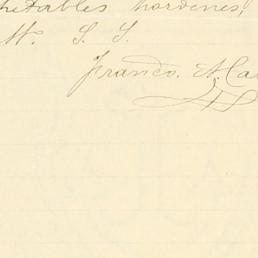 petables hordenes,
W. S. S.
Franco. A. Ca